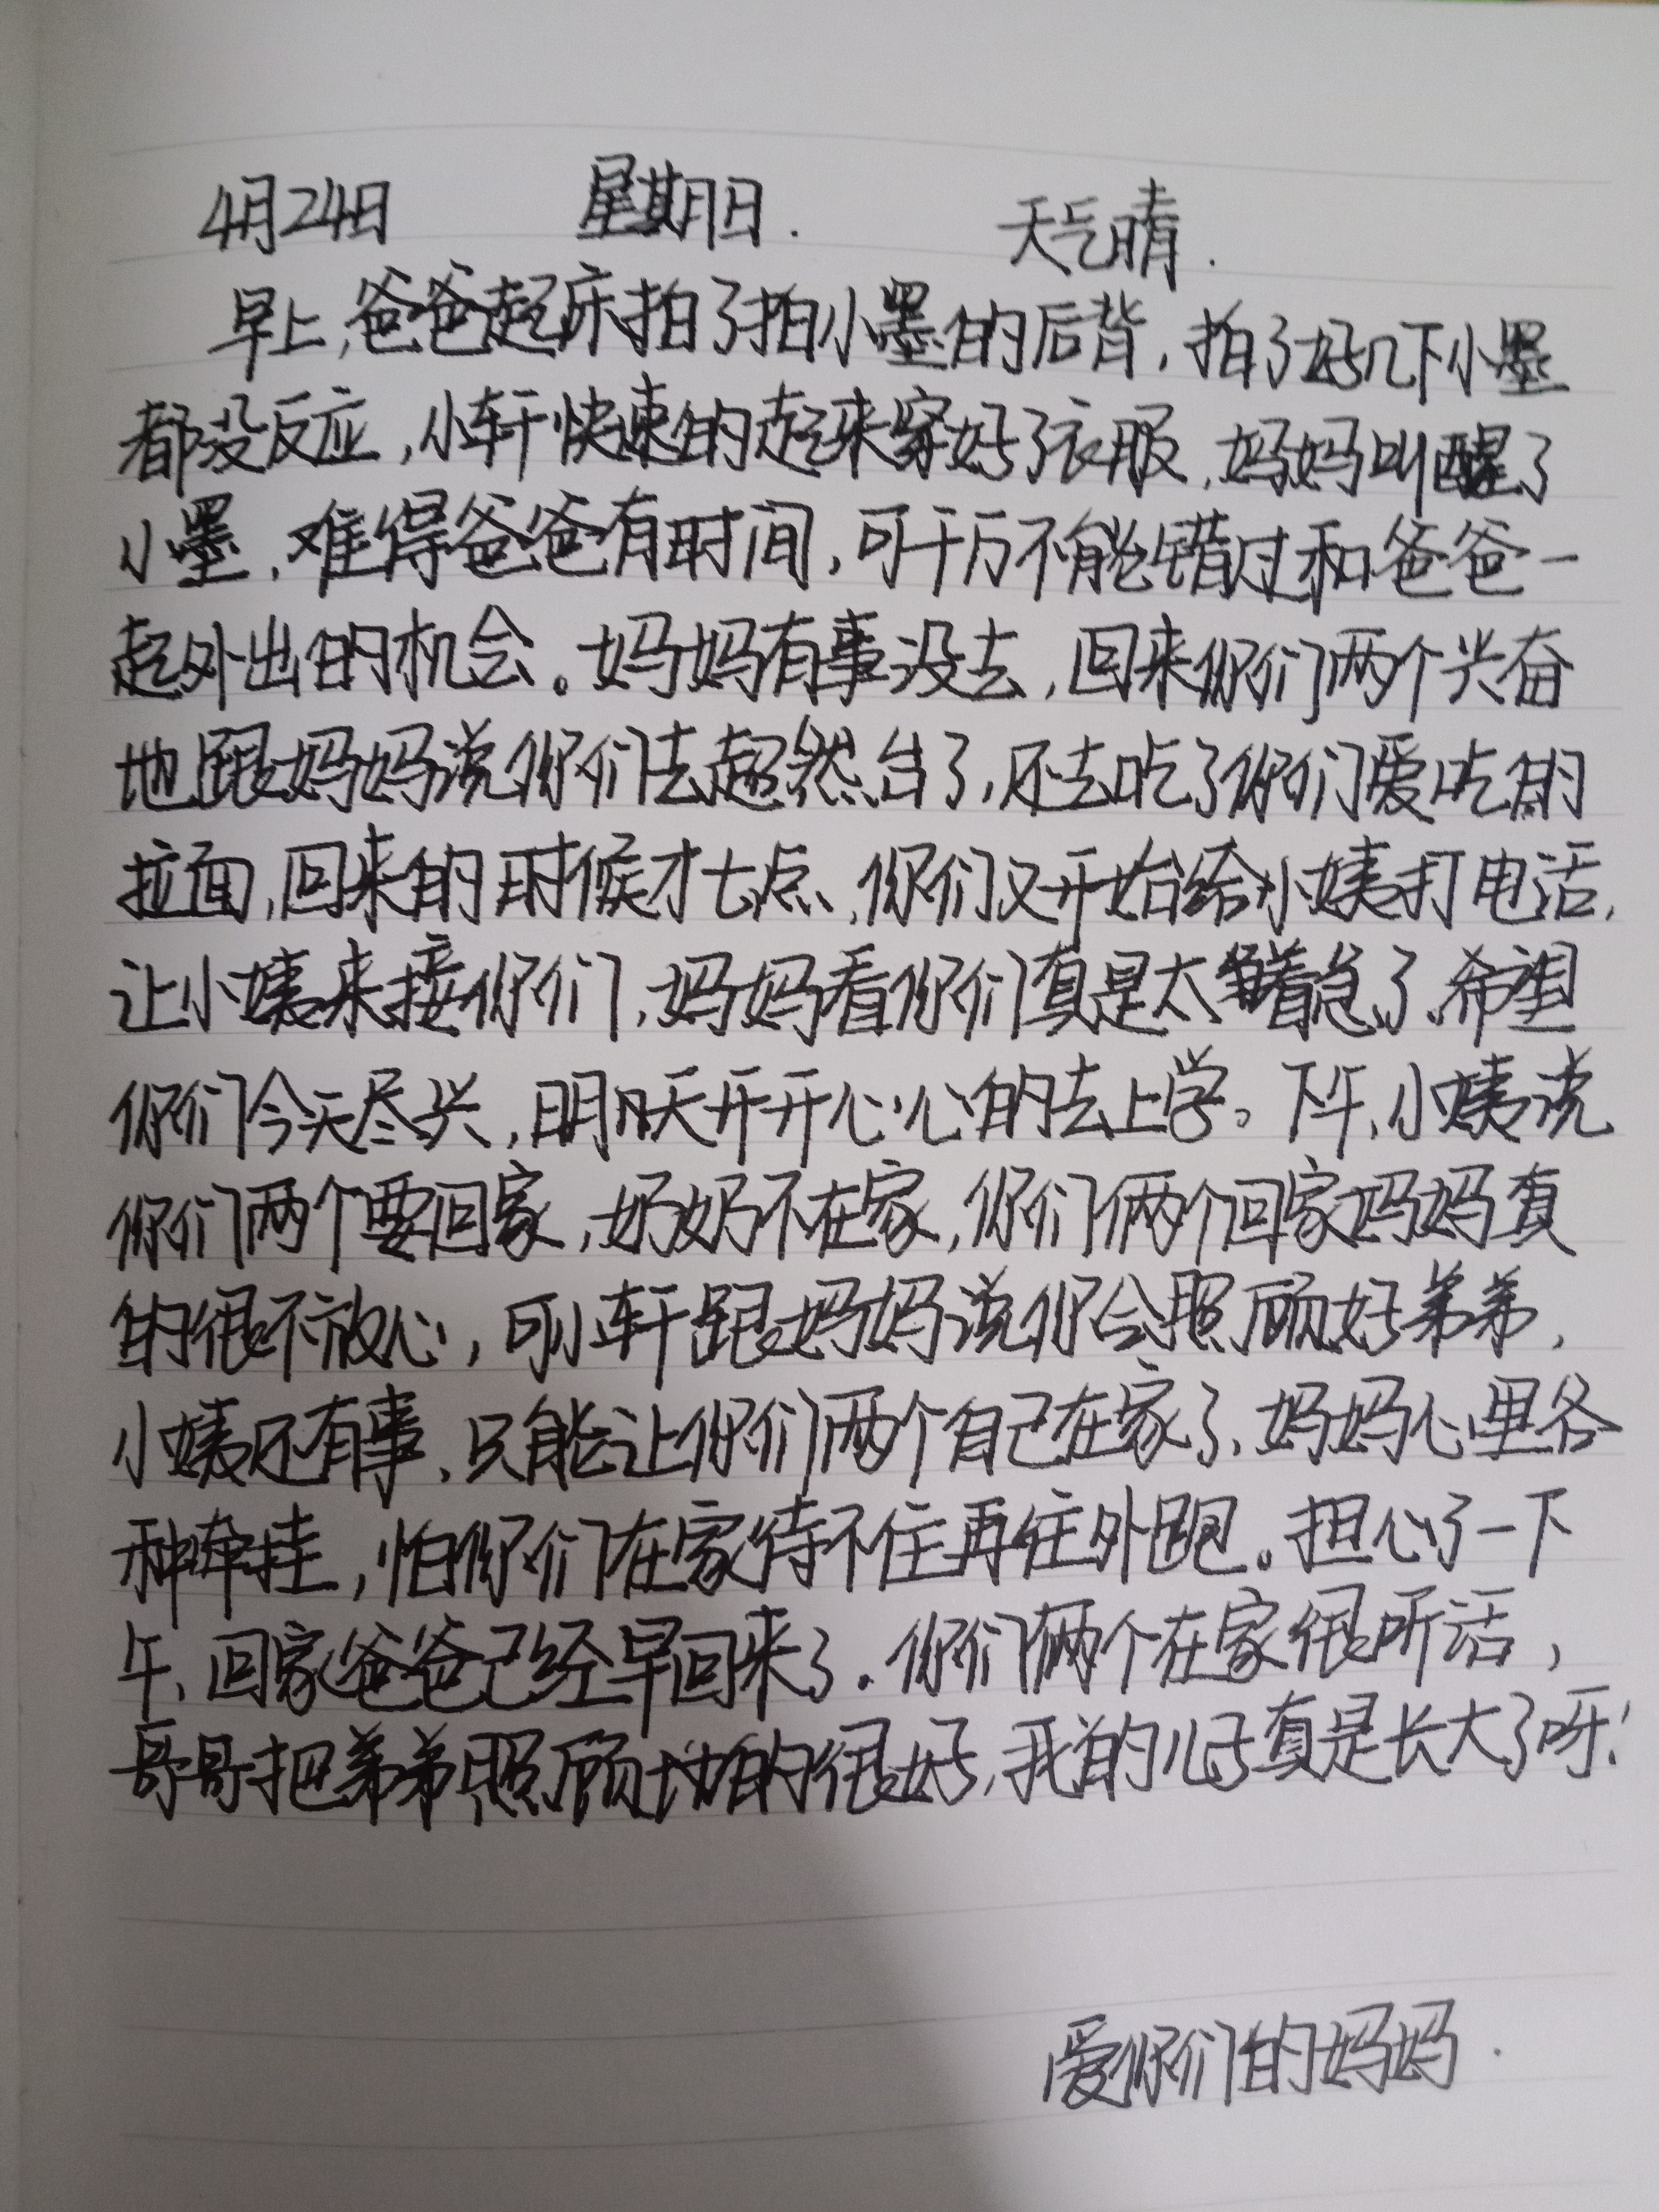 4月24日 星期日. 天气晴.
早上,爸爸起床拍了拍小墨的后背,拍了好几下小墨
都没反应,小轩快速的起来穿好了衣服,妈妈叫醒了
小墨,难得爸爸有时间,可千万不能错过和爸爸一
起外出的机会。妈妈有事没去,回来你们两个兴奋
地跟妈妈说你们去超然台了,还去吃了你们爱吃的
拉面,回来的时候才七点,你们又开始给小姨打电话,
让小姨来接你们,妈妈看你们真是太着急了,希望
你们今天尽兴,明天开开心心的去上学。下午,小姨说
你们两个要回家,奶奶不在家,你们俩个回家妈妈真
的很不放心,可小轩跟妈妈说你会照顾好弟弟,
小姨还有事,只能让你们两个自己在家了,妈妈心里各
种牵挂,怕你们在家待不住再往外跑。担心了一下
午,回家爸爸已经早回来了.你们俩个在家很听话,
哥哥把弟弟照顾地的很好,我的儿子真是长大了呀!
爱你们的妈妈.